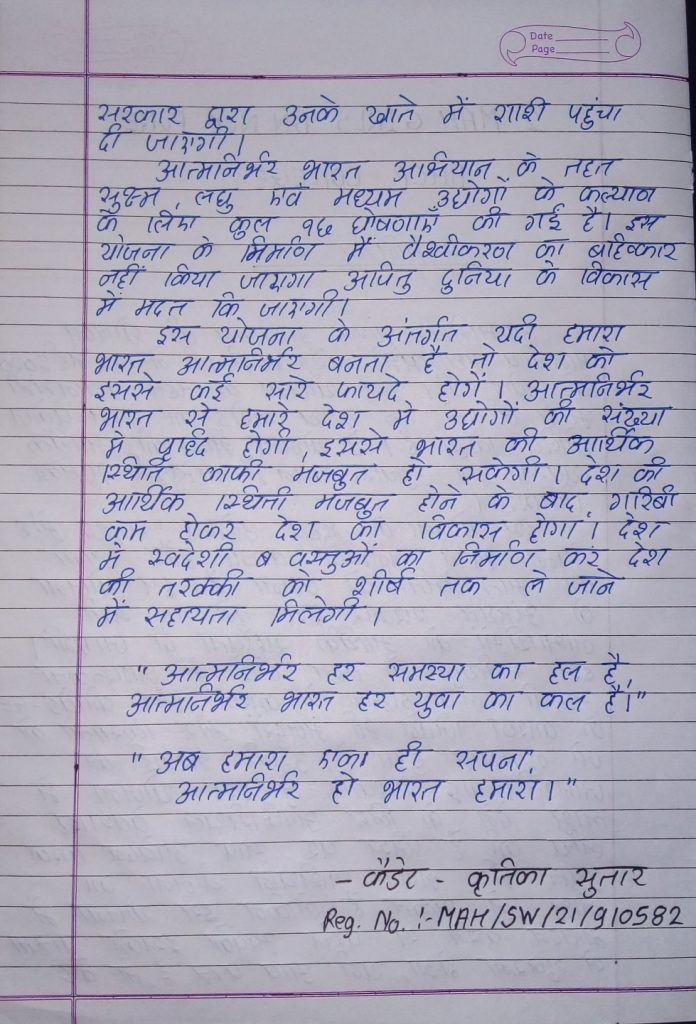 Date
Page
सरकार द्वारा उनके खाते में राशी पहुंचा
दी जाएगी।
आत्मनिर्भर भारत अभियान के तहत
सुक्ष्म, लघु एवं मध्यम उद्योगों के कल्याण
के लिए कुल १६ घोषणाएं की गई है। इस
योजना के निर्माण में वैश्वीकरण का बहिष्कार
नहीं किया जाएगा अपितु दुनिया के विकास
में मदत कि जाएगी।
इस योजना के अंतर्गत यदी हमारा
भारत आत्मनिर्भर बनता है तो देश को
इससे कई सारे फायदे होगें। आत्मनिर्भर
भारत से हमारे देश मे उद्योगों की संख्या
मे वृद्धि होगी, इससे भारत की आर्थिक
स्थिति काफी मजबुत हो सकेगी। देश की
आर्थिक स्थिती मजबुत होने के बाद गरिबी
कम होकर देश का विकास होगा। देश
मे स्वदेशी व वस्तुओं का निर्माण कर देश
की तरक्की को शीर्ष तक ले जाने
में सहायता मिलेगी।
" आत्मनिर्भर हर समस्या का हल है,
आत्मनिर्भर भारत हर युवा का कल है।"
" अब हमारा एक ही सपना,
आत्मनिर्भर हो भारत हमारा।"
- कैडेट - कृतिका सुतार
Reg. No. :- MAH/SW/21/910582